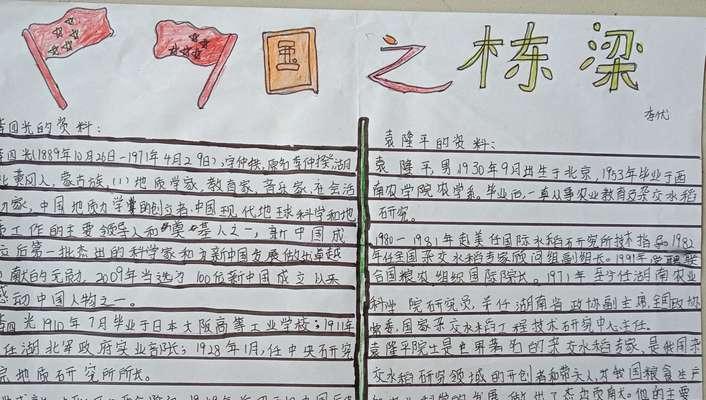 国之栋梁
李代
李四光的资料：
四光(1889年10月26日-1971年4月29日),字仲揆,原名李仲揆,湖
北黄冈人，蒙古族，(1)地质学家、教育家、音乐家、社会活
动家，中国地质力学的创立者、中国现代地球科学和地
质工作的主要领导人和奠基人之一，新中国成
立后第一批杰出的科学家和为新中国发展做出卓越
贡献的元勋，2009年当选为100位新中国成立以来
感动中国人物之一。
四光1910年7月毕业于日本大阪高等工业学校；1911年
任湖北军政府实业部长；1928年1月，任中央研究
院地质研究所所长。
袁隆平的资料：
袁隆平，男1930年9月出生于北京，1953年毕业于西
南农学院农学系。毕业后，一直从事农业教育及杂交水稻
研究。
1980一1981年赴美任国际水稻研究所技术指导。1982
年任全国杂交水稻专家顾问组副组长。1991年受聘联
合国粮农组织国际院长。1971年至今任湖南农业
科学院研究员，并任湖南省政协副主席、全国政协
常委、国家杂交水稻工程技术研究中心主任。
袁隆平院士是世界著名的杂交水稻专家，是我国杂
交水稻研究领域的开创者和带头人，为我国粮食生产
和农业科学的发展做出了杰出贡献。他的主要